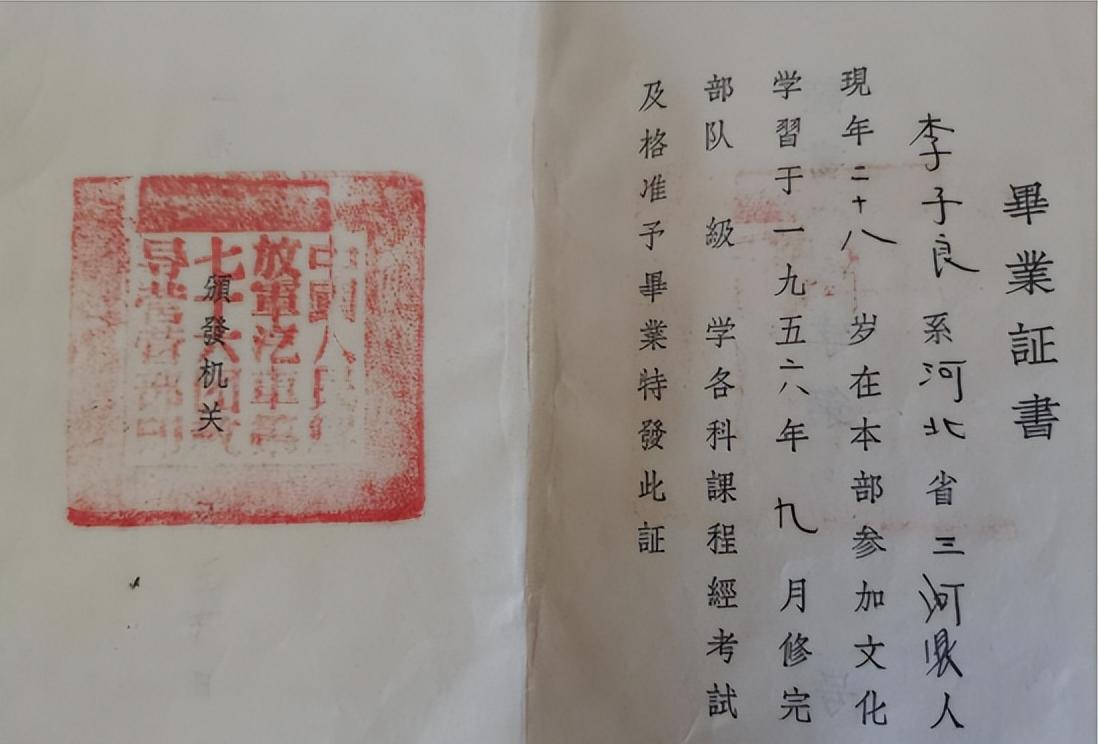 畢業証書
李子良系河北省三河縣人
現年二十八岁在本部参加文化
学習于一九五六年九月修完
部队 級 学各科課程經考試
及格准予畢業特發此証
頒發机关
中國人民
放軍汽車第
七十六團
导营营部印